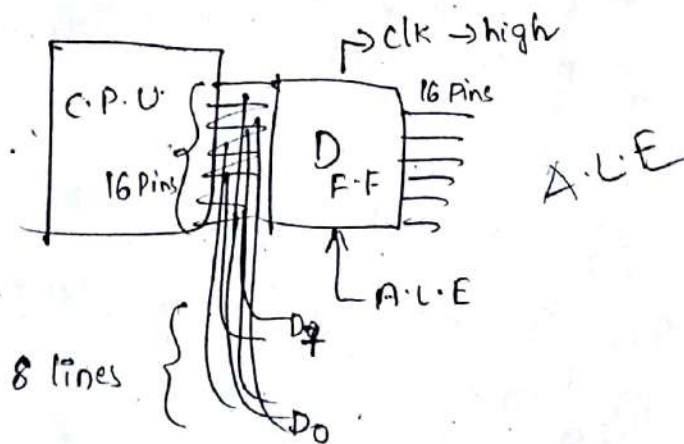 clk → high
C.P.U.
16 Pins
D
F-F
16 Pins
A.L.E
A.L.E
8 lines
D7
D0